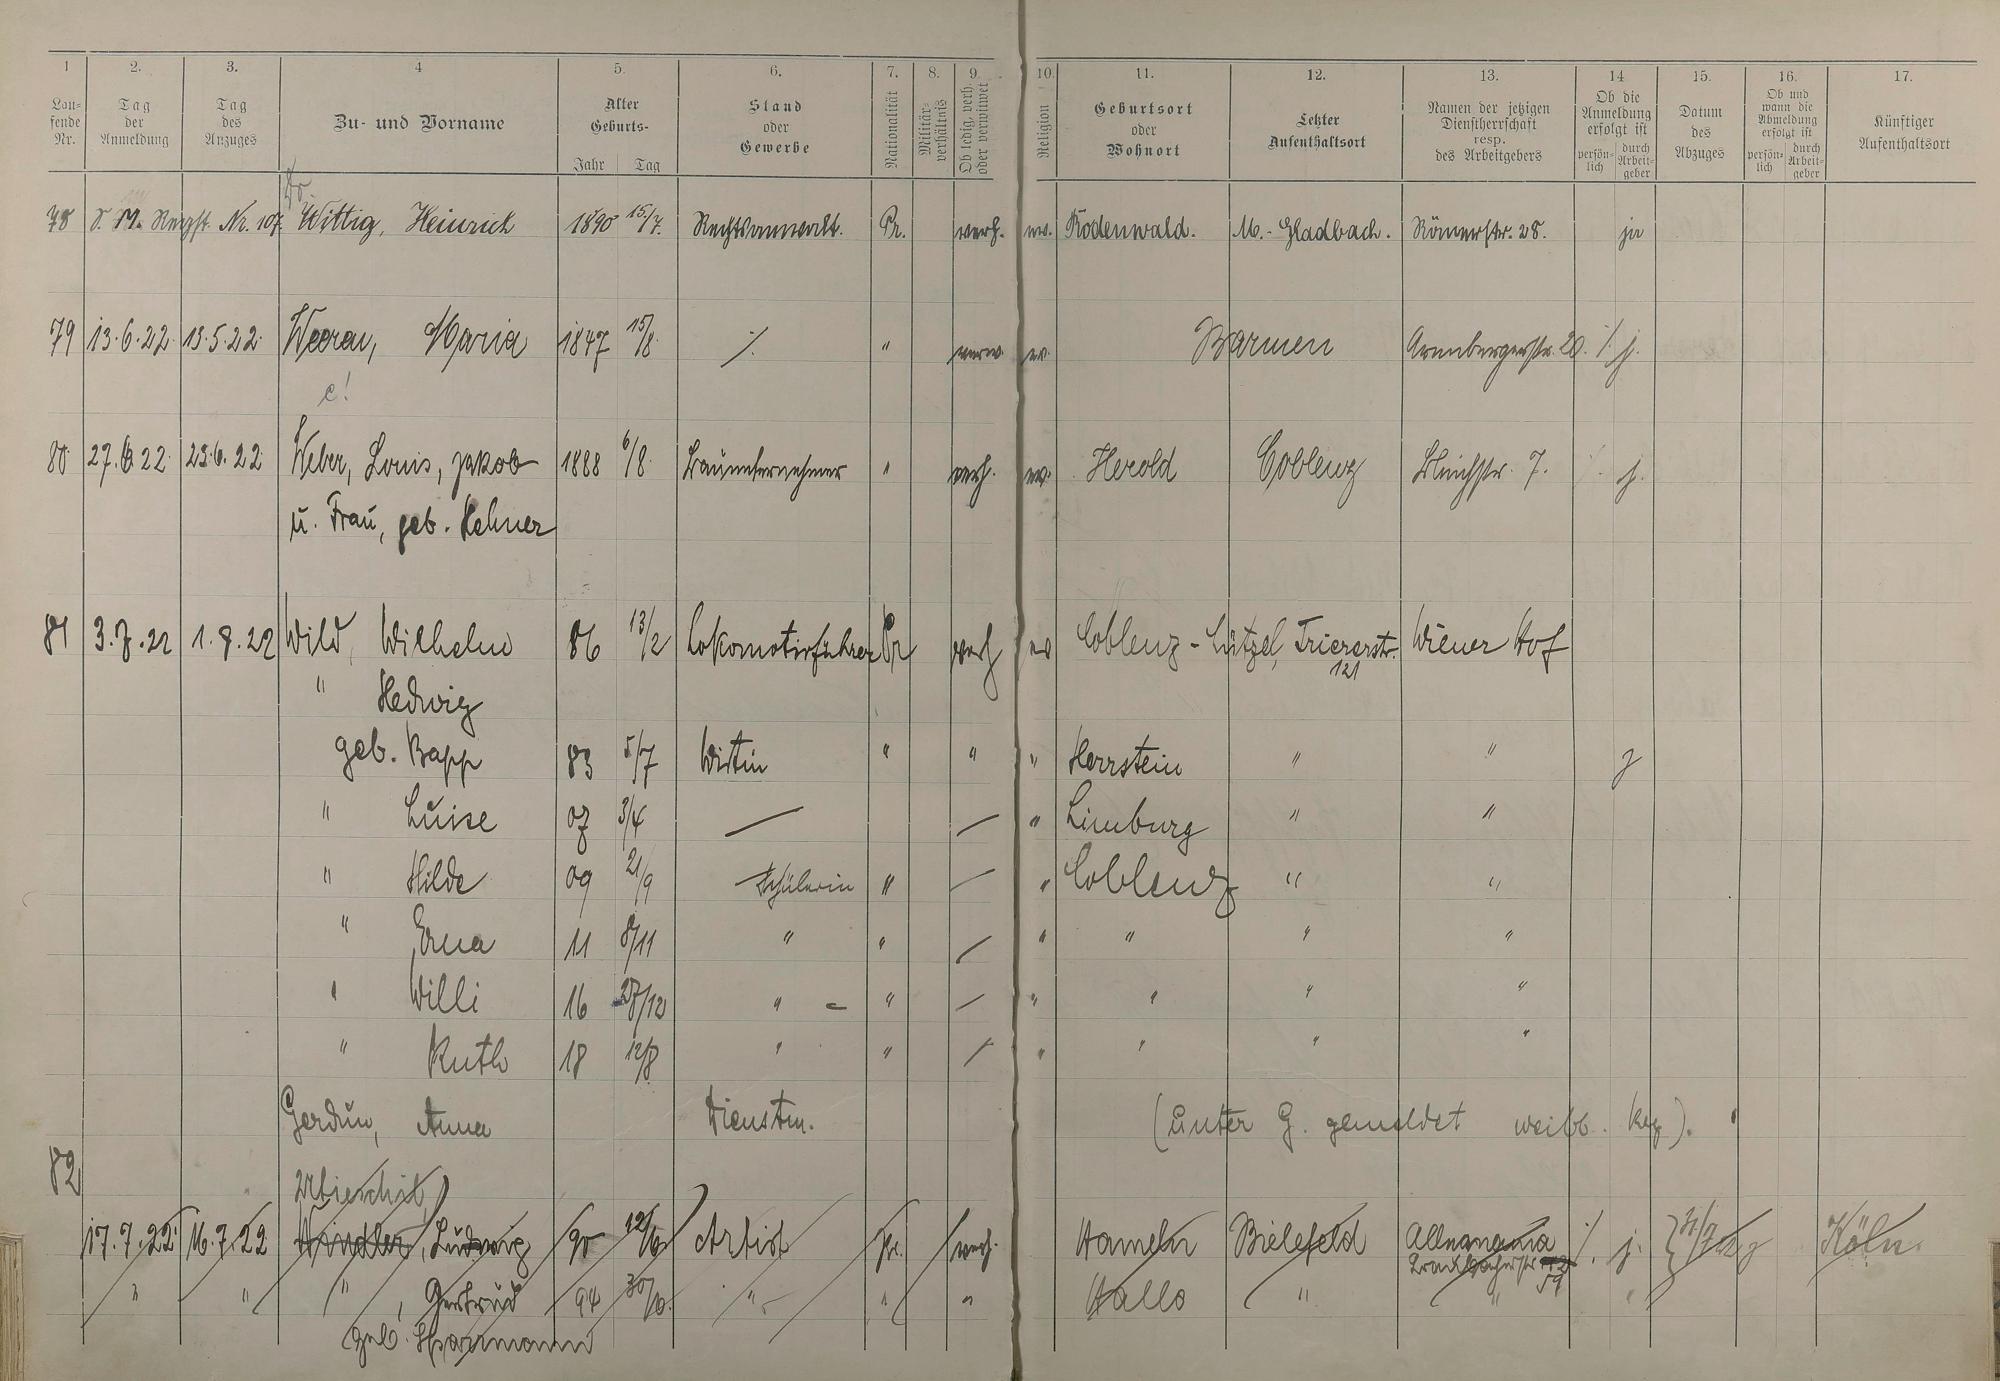 1 2. 3. 4 5. 6. 7. 8. 9. 10. 11. 12. 13. 14 15. 16. 17.
Lau-fende Nr. Tag der Anmeldung Tag des Anzuges Zu- und Vorname Alter Geburts- Jahr Tag Stand oder Gewerbe Nationalität Militär-verhältnis Ob ledig, verh. oder verwitwet Religion Geburtsort oder Wohnort Letzter Aufenthaltsort Namen der jetzigen Dienstherrschaft resp. des Arbeitgebers Ob die Anmeldung erfolgt ist persön-lich durch Arbeit-geber Datum des Abzuges Ob und wann die Abmeldung erfolgt ist persön-lich durch Arbeit-geber Künftiger Aufenthaltsort
Dr.
78 Nr. 107. Wittig, Heinrich 1890 15/7. Rechtsanwalt. Pr. verh. ev. Rodenwald. M.-Gladbach. Römerstr. 28. ja
79 13.6.22 13.5.22 Maria 1847 15/8 ⁒ " verw. ev. Barmen Arenbergerstr. 20. ⁒ j.
c!
80 27.6.22 23.6.22 Weber, Louis, Jakob 1888 6/8. Bauunternehmer " verh. ev. Herold Coblenz Bleichstr. 7. ⁒ j.
u. Frau, geb. Lehner
81 3.7.22 1.7.22 Wild, Wilhelm 86 13/2 Lokomotivführer Pr verh ev Coblenz-Lützel, Triererstr. 121 Wiener Hof
" Hedwig
geb. Bapp 83 5/7 Wirtin " " " Herrstein " " j
" Luise 07 3/4 — — " Limburg " "
" Hilde 09 21/9 Schülerin " — " Coblenz " "
" Erna 11 8/11 " " — " " " "
" Willi 16 27/12 " - " — " " " "
" Ruth 18 12/8 " " — " " " "
Gerdun, Anna Dienstm. (unter G. gemeldet weibl. Reg).
82
17.7.22 16.7.22 Händler, Ludwig 90 12/6 Artist Pr. verh. Hameln Bielefeld Allemania ⁒ j. 31/7 22 Köln
" " " , Gertrud 94 30/6. " " " Halle " 59 " "
geb. Harrmann